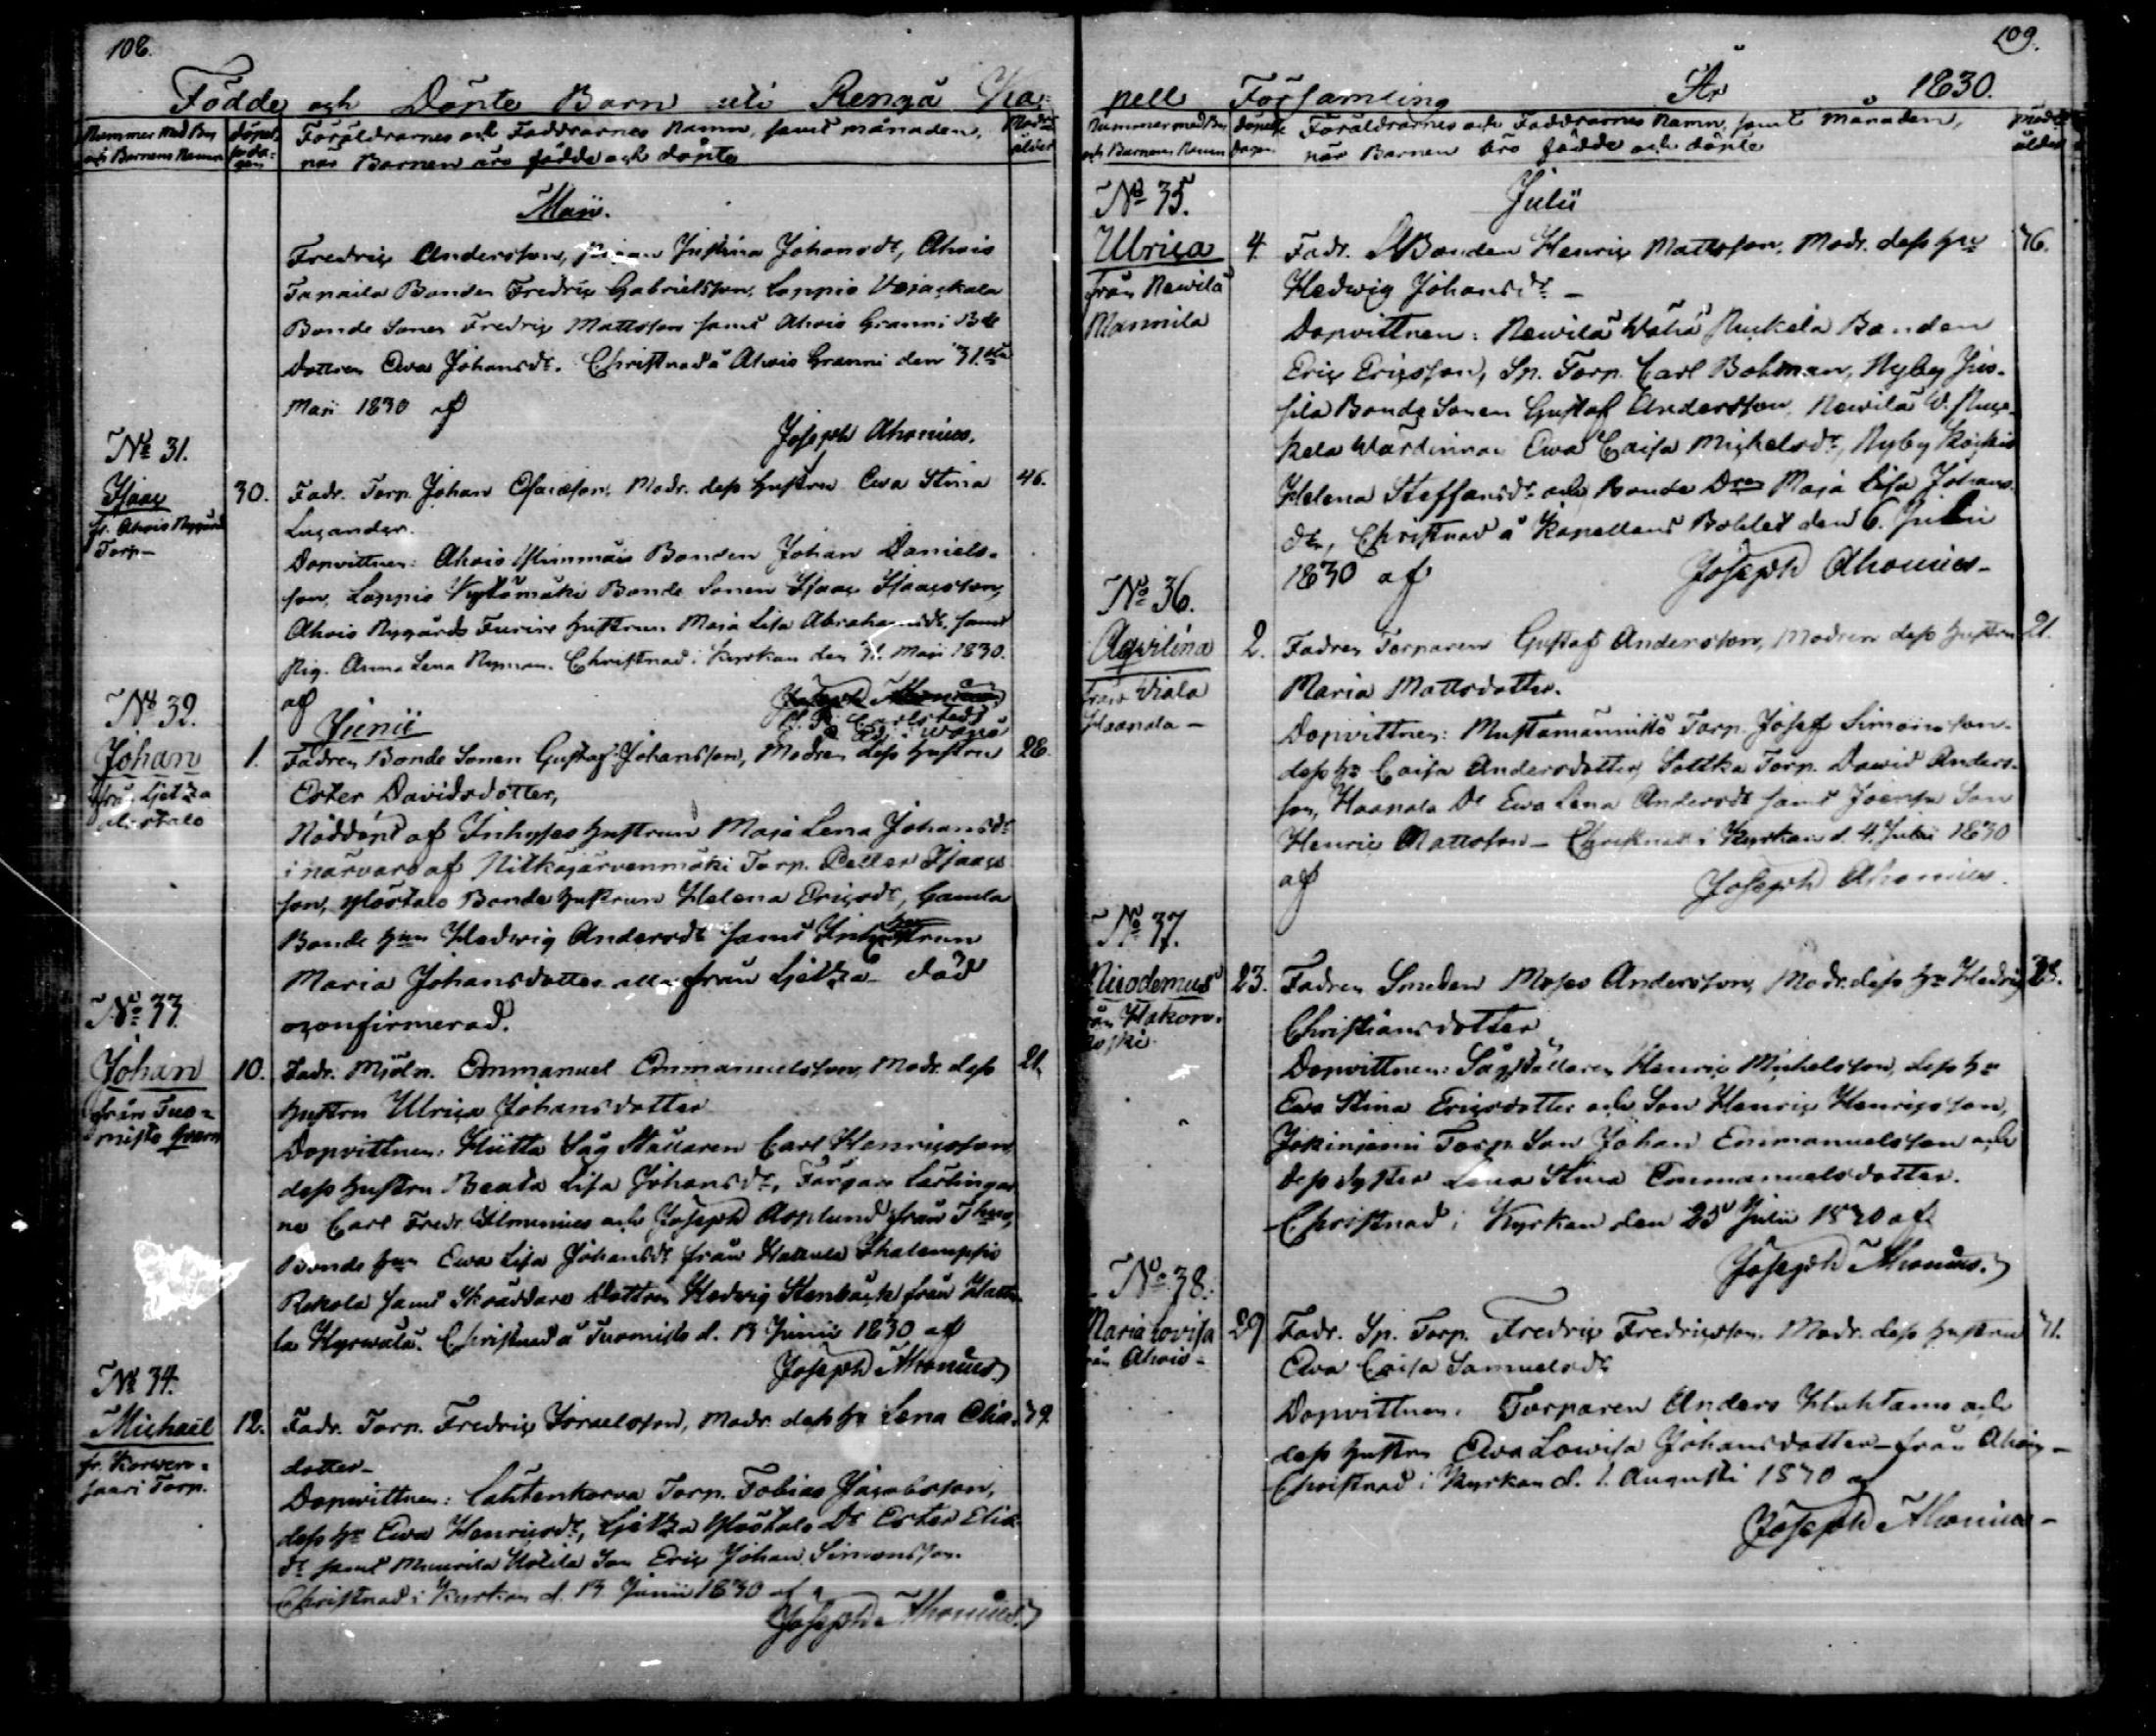 108.
Födde och Döpte Barn uti Rengå Ka=
Nummer med By och Barnens Namn
Föräldrarnes och Faddrarnes Namn, samt månaden,
när Barnen äro födde och döpte
Maii.
Fredric Andersson, Justina Johansdr, Ahois
Bonden Fredric Gabrielsson, Loppis
Bonde Sonen Fredric Mattsson samt Ahois Granni Bde
dottren Eva Johansdr. Christnad å Ahois Granni den 31.
Maii 1830 af
Joseph Ahonius.
No 31.
Isaac
fr. Ahois Nygård
Torp
30. Fadr. Torp. Johan Esaiasson, Modr. dess hustru Eva Stina 46.
Lucander.
Dopvittnen: Ahois Bonden Johan Daniels-
son, Loppis Kylämäki Bonde Sonen Isaac Isaacsson,
Ahois Nygårds Furire hustrun Maja Lisa Abrahamsdr. samt
Pig. Anna Lena Nyman. Christnad i Kyrkan den 31. Maii 1830.
af
Junii
No 32.
Johan
1. Fadren Bonde Sonen Gustaf Johansson, Modren dess hustru 28.
Ester Davidsdotter,
Nöddöpt af Inhyses hustrun Maja Lena Johansdr
i närvaro af Torp. Petter Isaacs
son, Ylöstalo Bonde hustrun Helena Ericsdr, Gamla
Bonde hun Hedwig Andersdr samt
Maria Johansdotter alla från Ljetza död
oconfirmerad.
No 33.
Johan
från Tuo=
misto Qvarn
10. Fadr. Mjöln. Emmanuel Emmanuelsson, Modr. dess 21.
hustru Ulrica Johansdotter
Dopvittnen: Hiitta Såg Ställaren Carl Henricsson,
dess hustru Beata Lisa Johansdr, Färgare Lärlingar
ne Carl Fredr. och Joseph Asplund från Thus,
Bonde hun Eva Lisa Johansdr från Hattula Ihalempsi
Rekola samt Skräddare Dottren Hedwig Stenbäck från Hattu
la Hyrwälä. Christnad å Tuomisto d. 13 Junii 1830 af
Joseph Ahonius.
No 34.
Michaël
fr. Korven=
saari Torp.
12. Fadr. Torp. Fredric Israelsson, Modr. dess hu Lena Elia- 39.
dotter
Dopvittnen: Lahtenkorva Torp. Tobias Jacobsson,
dess hu Eva Henricsdr, Ljetza Ylöstalo Dr Ester Elia
dr samt Son Eric Johan Simonsson
Christnad i Kyrkan d. 13 Junii 1830 af
Joseph Ahonius.
109.
pell Församling År 1830.
Nummer med By och Barnens Namn
Föräldrarnes och Faddrarnes Namn, samt månaden,
när Barnen äro födde och döpte
Julii
No 35.
Ulrica
från Newilä
Mannila
4. Fadr. Bonden Henric Mattsson, Modr. dess hu 36.
Hedwig Johansdr
Dopvittnen: Newilä Wähä Nuckela Bonden
Eric Ericsson, Sp. Torp. Carl Bohman, Nyby Jus-
sila Bonde Sonen Gustaf Andersson, Newilä W. Nuc-
kela Wärdinnan Eva Caisa Michelsdr, Nyby
Helena Steffansdr och Bonde Dren Maja Lisa Johans-
dr, Christnad å Kapellans Bohlet den 6. Julii
1830 af
Joseph Ahonius
No 36.
Aqvilina
från Viala
Haanala
2. Fadren Torparen Gustaf Andersson, Modren dess hustru 21.
Maria Mattsdotter.
Dopvittnen: Mustamännistö Torp. Josef Simonsson
dess hu Caisa Andersdotter, Sottka Torp. David Anders-
son, Haanala Dr Eva Lena Andersdr samt Son
Henric Mattsson Christnad i Kyrkan d. 4. Julii 1830
af
Joseph Ahonius.
No 37.
Nicodemus
från Hakois
23. Fadren Smeden Moses Andersson, Modr. dess hu Hedvig 28.
Christiansdotter
Dopvittnen: Sågställaren Henric Michelsson, dess hu
Eva Stina Ericsdotter och Son Henric Henricsson,
Jokiniemi Torp. Son Johan Emmanuelsson och
dess Syster Lena Stina Emmanuelsdotter.
Christnad i Kyrkan den 25 Julii 1830 af
Joseph Ahonius.
No 38.
Maria Lovisa
från Ahois
29 Fadr. Sp. Torp. Fredric Fredricsson. Modr. dess hustru 41.
Eva Caisa Samuelsdr
Dopvittnen: Torparen Anders Huhtamo och
dess hustru Eva Lowisa Johansdotter från Ahois
Christnad i Kyrkan d. 1. Augusti 1830 af
Joseph Ahonius